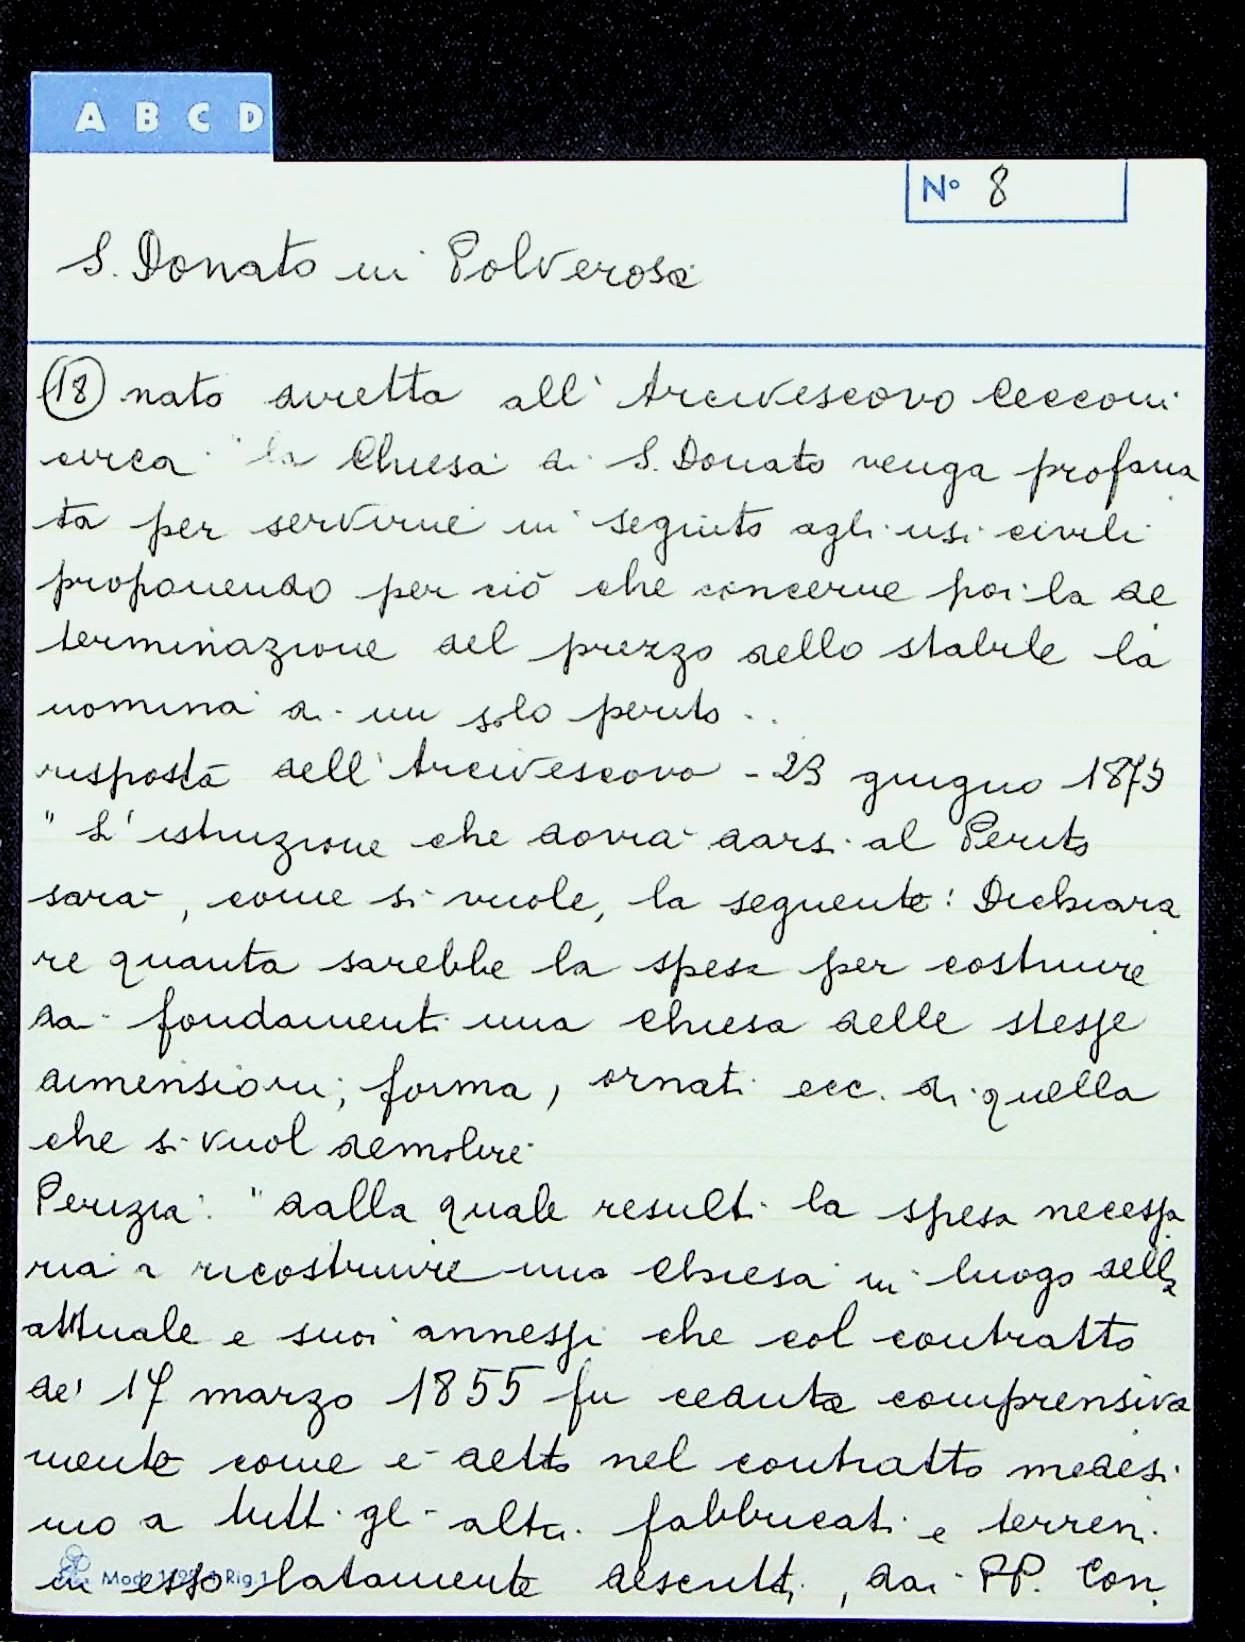 A B C D
N° 8
S. Donato in Polverosa
(18) nato diretta all' Arcivescovo Cecconi
circa "la Chiesa di S. Donato venga profana
ta per servirne in seguito agli usi civili
proponendo per ciò che concerne poi la de
terminazione del prezzo dello stabile la
nomina di un solo perito..
risposta dell' Arcivescovo - 23 giugno 1879
" L' istruzione che dovrà darsi al Perito
sarà, come si vuole, la seguente: Dichiara
re quanta sarebbe la spesa per costruire
da fondamenti una chiesa delle stesse
dimensioni, forma, ornati ecc. di quella
che si vuol demolire
Perizia: "dalla quale resulti la spesa necessa
ria a ricostruire una Chiesa in luogo della
attuale e suoi annessi che col contratto
de' 17 marzo 1855 fu ceduta comprensiva
mente come è detto nel contratto medesi
mo a tutti gl altri fabbricati e terreni
in esso latamente descritti, dai PP. Con
Rig.1